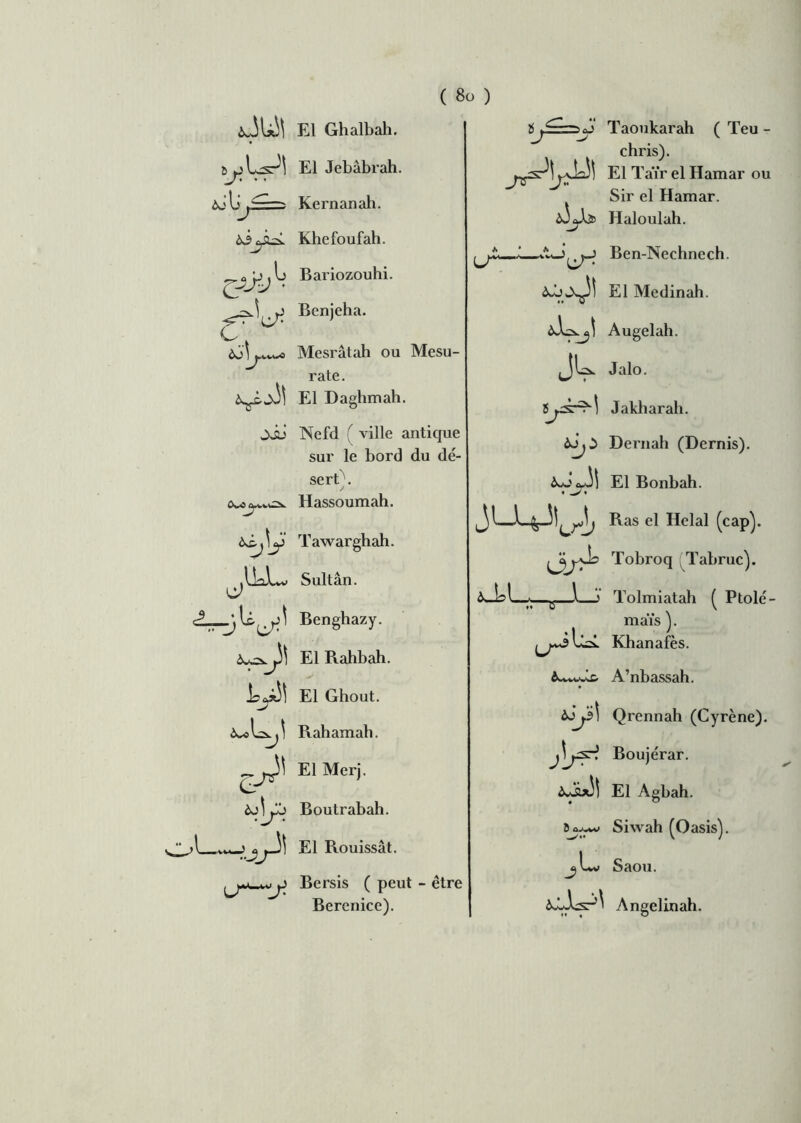 ( 80 )
الغالبه El Ghalbah.
الجابره El Jebâbrah.
Kernanah.
Khefoufah.
Bariozouhi.
Benjeha.
Mesrâtah ou Mesu-
rate.
الدغمه El Daghmah.
نفد Nefd ( ville antique
sur le bord du dé-
sert).
حسومه Hassoumah.
توارغه Tawarghah.
سلطان Sultân.
بن غازي Benghazy.
الرحبه El Rahbah.
الغوط El Ghout.
Rahamah.
المرج El Merj.
بوترابه Boutrabah.
الرويسات El Rouissât.
برسيس Bersis ( peut - être
Berenice).
توكره Taoukarah ( Teu -
chris).
El Taïr el Hamar ou
Sir el Hamar.
هلوله Haloulah.
Ben-Nechnech.
المدينه El Medinah.
اوجله Augelah.
جالو Jalo.
اجخره Jakharah.
درنه Dernah (Dernis).
البونبه El Bonbah.
راس الهلال Ras el Helal (cap).
طبرق Tobroq (Tabruc).
Tolmiatah ( Ptolé-
maïs ).
خنافس Khanafès.
عنبسه A'nbassah.
اقرنه Qrennah (Cyrène).
بوجرار Boujérar.
العقبه El Agbah.
سيوه Siwah (Oasis).
ساو Saou.
انجلينه Angelinah.